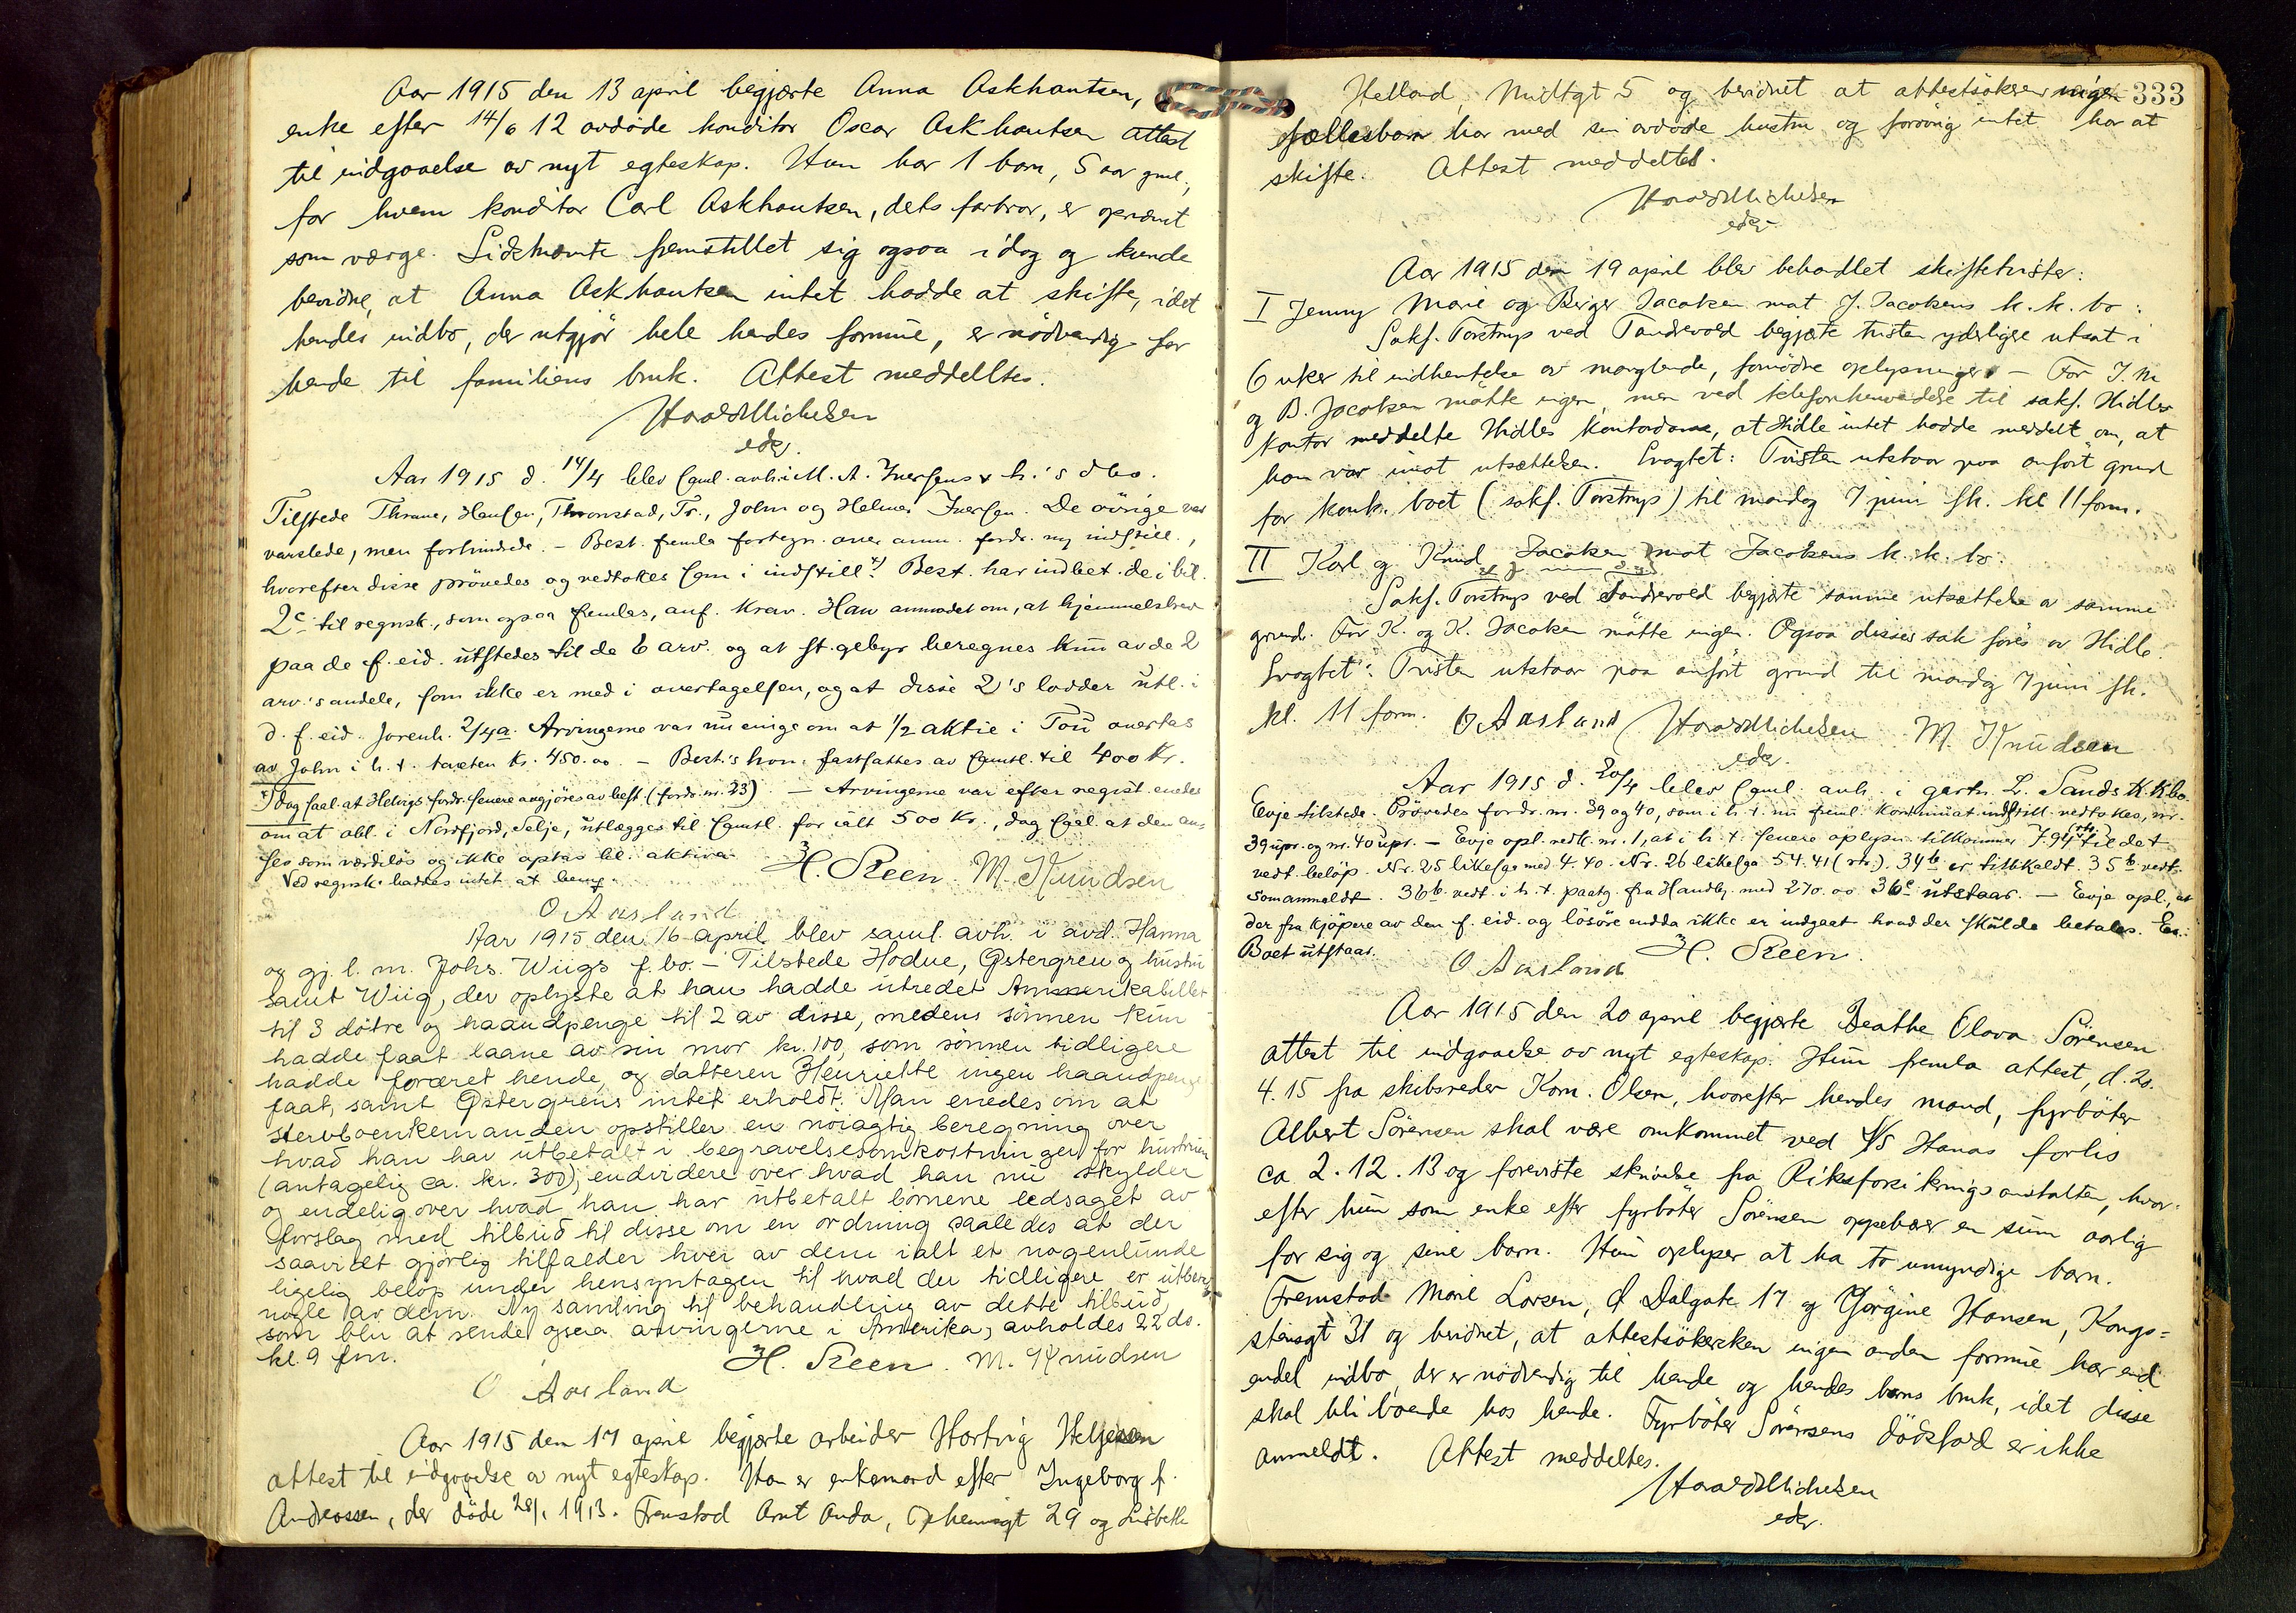 Aar 1915 den 13 april begjærte Anna Askhautsen,
enke efter 14/6 12 avdøde konditor Oscar Askhautsen attest
til indgaaelse av nyt egteskap. Hun har 1 barn, 5 aar gml.,
for hvem konditor Carl Askhautsen, dets farbror, er opnævnt
som værge. Sidstnævnte fremstillet sig ogsaa idag og kunde
bevidne, at Anna Askhautsen intet hadde at skifte, idet
hendes indbo, der utgjør hele hendes formue, er nødvendig for
hende til familiens bruk. Attest meddeltes.
Haaland Michelsen
edsv.
Aar 1915 d. 14/4 blev saml. avh. i M. A. Iversens & h.'s dbo.
Tilstede Thrane, Hansen, Thronstad, Tr., John og Helmer Iversen. De øvrige var
varslede, men forhindrede. – Best. fremla fortegn. over anm. fordr. ny indstill.,
hvorefter disse prøvedes og vedtokes som i indstill. x) Best. har indbet. de i bil.
2c til regnsk., som ogsaa fremlas, anf. krav. Han anmodet om, at hjemmelsbrev
paa de f. eid. utstedes til de 6 arv. og at st.gebyr beregnes kun av de 2
arv.'s andele, som ikke er med i overtagelsen, og at disse 2's lodder utl. i
d. f. eid. forenh. 2/4a. Arvingerne var nu enige om at 1/2 aktie i Tou overtas
av John i h. t. taxten kr. 450.00. – Best.'s hon. fastsattes av samtl. til 400 kr.
x) dog saal. at Helvigs fordr. senere avgjøres av best. (fordr. nr. 23) – Arvingerne var efter regist. enedes
om at obl. i Nordfjord, Selje, utlægges til samtl. for ialt 500 kr., dog saal. at den an-
sees som værdiløs og ikke optas bl. aktiva.
Ved regnsk. hadtes intet at bem.
H. Steen. M. Knudsen
O Aasland
Aar 1915 den 16 april blev saml. avh. i avd. Hanna
og gj. l. m. Johs. Wiigs f. bo. – Tilstede Hodne, Østergren og hustru
samt Wiig, der oplyste at han hadde utredet Amerikabillet
til 3 døtre og haandpenge til 2 av disse, medens sønnen kun
hadde faat laane av sin mor kr. 100, som sønnen tidligere
hadde foræret hende, og datteren Henriette ingen haandpenge
faat, samt Østergrens intet erholdt. Man enedes om at
stervboenkemanden opstiller en nøiagtig beregning over
hvad han har utbetalt i begravelsesomkostninger for hustruen
(antagelig ca. kr. 300); endvidere over hvad han nu skylder
og endelig over hvad han har utbetalt børnene ledsaget av
forslag med tilbud til disse om en ordning saaledes at der
saavidt gjørlig tilfalder hver av dem ialt et nogenlunde
ligelig beløp under hensyntagen til hvad der tidligere er utbet.
nogle av dem. Ny samling til behandling av dette tilbud,
som blir at sende ogsaa arvingerne i Amerika, avholdes 22 ds.
kl. 9 fm.
H. Steen. M. Knudsen
O Aasland
Aar 1915 den 17 april begjærte arbeider Hartvig Helgesen
attest til indgaaelse av nyt egteskap. Han er enkemand efter Ingeborg f.
Andreassen, der døde 28/1 1913. Fremstod Arnt Anda, 29 og Lisbeth
333
Helland, Midtgt 5 og bevidnet at attestsøkeren ingen
fællesbarn har med sin avdøde hustru og forøvrig intet har at
skifte. Attest meddeltes.
Haaland Michelsen
edsv.
Aar 1915 den 19 april blev behandlet skiftetvister:
I Jenny Marie og Berger Jacobsen mot J. Jacobsens k. k. bo:
Sakf. Torstrup ved Tandrevold begjærte tvisten yderligere utsat i
6 uker til indhentelse av manglende, fornødne oplysninger – For J. M
og B. Jacobsen møtte ingen, men ved telefonhenvendelse til sakf. Hidles
kontor meddelte Hidles kontordame, at Hidle intet hadde meddelt om, at
han var imot utsættelsen. Eragtet: Tvisten utstaar paa anført grund
for konk. boet (sakf. Torstrup) til mandag 7 juni fk. kl 11 form.
II Karl og Knud Jacobsen mot Jacobsens k. k. bo:
Sakf. Torstrup ved Tandrevold begjærte samme utsættelse av samme
grund. For K. og K. Jacobsen møtte ingen. Ogsaa disses sak føres av Hidle.
Eragtet: Tvisten utstaar paa anført grund til mandag 7 juni fk.
kl. 11 form. O Aasland Haaland Michelsen M. Knudsen
edsv.
Aar 1915 d. 20/4 blev saml. avh. i gartn. L. Sands k.k.bo.
Evje tilstede. Prøvedes fordr. nr. 39 og 40, som i h. t. nu freml. kontinuat. indstill. vedtokes, nr.
39 upr. og nr. 40 upr. – Evje opl. vedk. nr. 1, at i h. t. senere oplysn. tilkommer 7.91 til det
vedt. beløp. Nr. 25 likesaa med 4.40. Nr. 26 likesaa 54.41 34b er tilbkaldt. 35b vedt.
som anmeldt. 36b vedt. i h. t. paateg. fra Handby. med 270.00 36c utstaar. – Evje opl., at
der fra kjøpere av den f. eid. og løsøre endda ikke er indgaat hvad der skulde betales.
Boet utstaar.
O Aasland H. Steen.
Aar 1915 den 20 april begjærte Beathe Olava Sørensen
attest til indgaaelse av nyt egteskap. Hun fremla attest, d. 20.
4.15 fra skibsreder Korn. Olsen, hvorefter hendes mand, fyrbøter
Albert Sørensen skal være omkommet ved S/S Hanas forlis
ca 2.12.13 og foreviste skrivelse fra Riksforsikringsanstalten, hvor-
efter hun som enke efter fyrbøter Sørensen oppebærer en sum aarlig
for sig og sine barn. Hun oplyser at ha to umyndige barn.
Fremstod Marie Larsen, Ø Dalgate 17 og Jørgine Hansen, Kongs-
stensgt 31 og bevidnet, at attestsøkersken ingen anden formue har end
endel indbo, der er nødvendig til hende og hendes barns bruk, idet disse
skal bli boende hos hende. Fyrbøter Sørensens dødsfald er ikke
anmeldt. Attest meddeltes.
Haaland Michelsen
edsv.